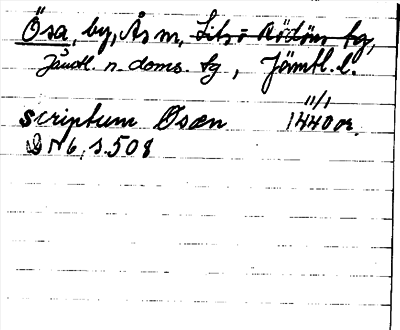 Ösa, by, Ås m, Lits o Rödöns tg,
Jämtl. n. doms. tg, Jämtl. l.
11/1
scriptum Øsæn 1440 or.
DN 6, s. 508